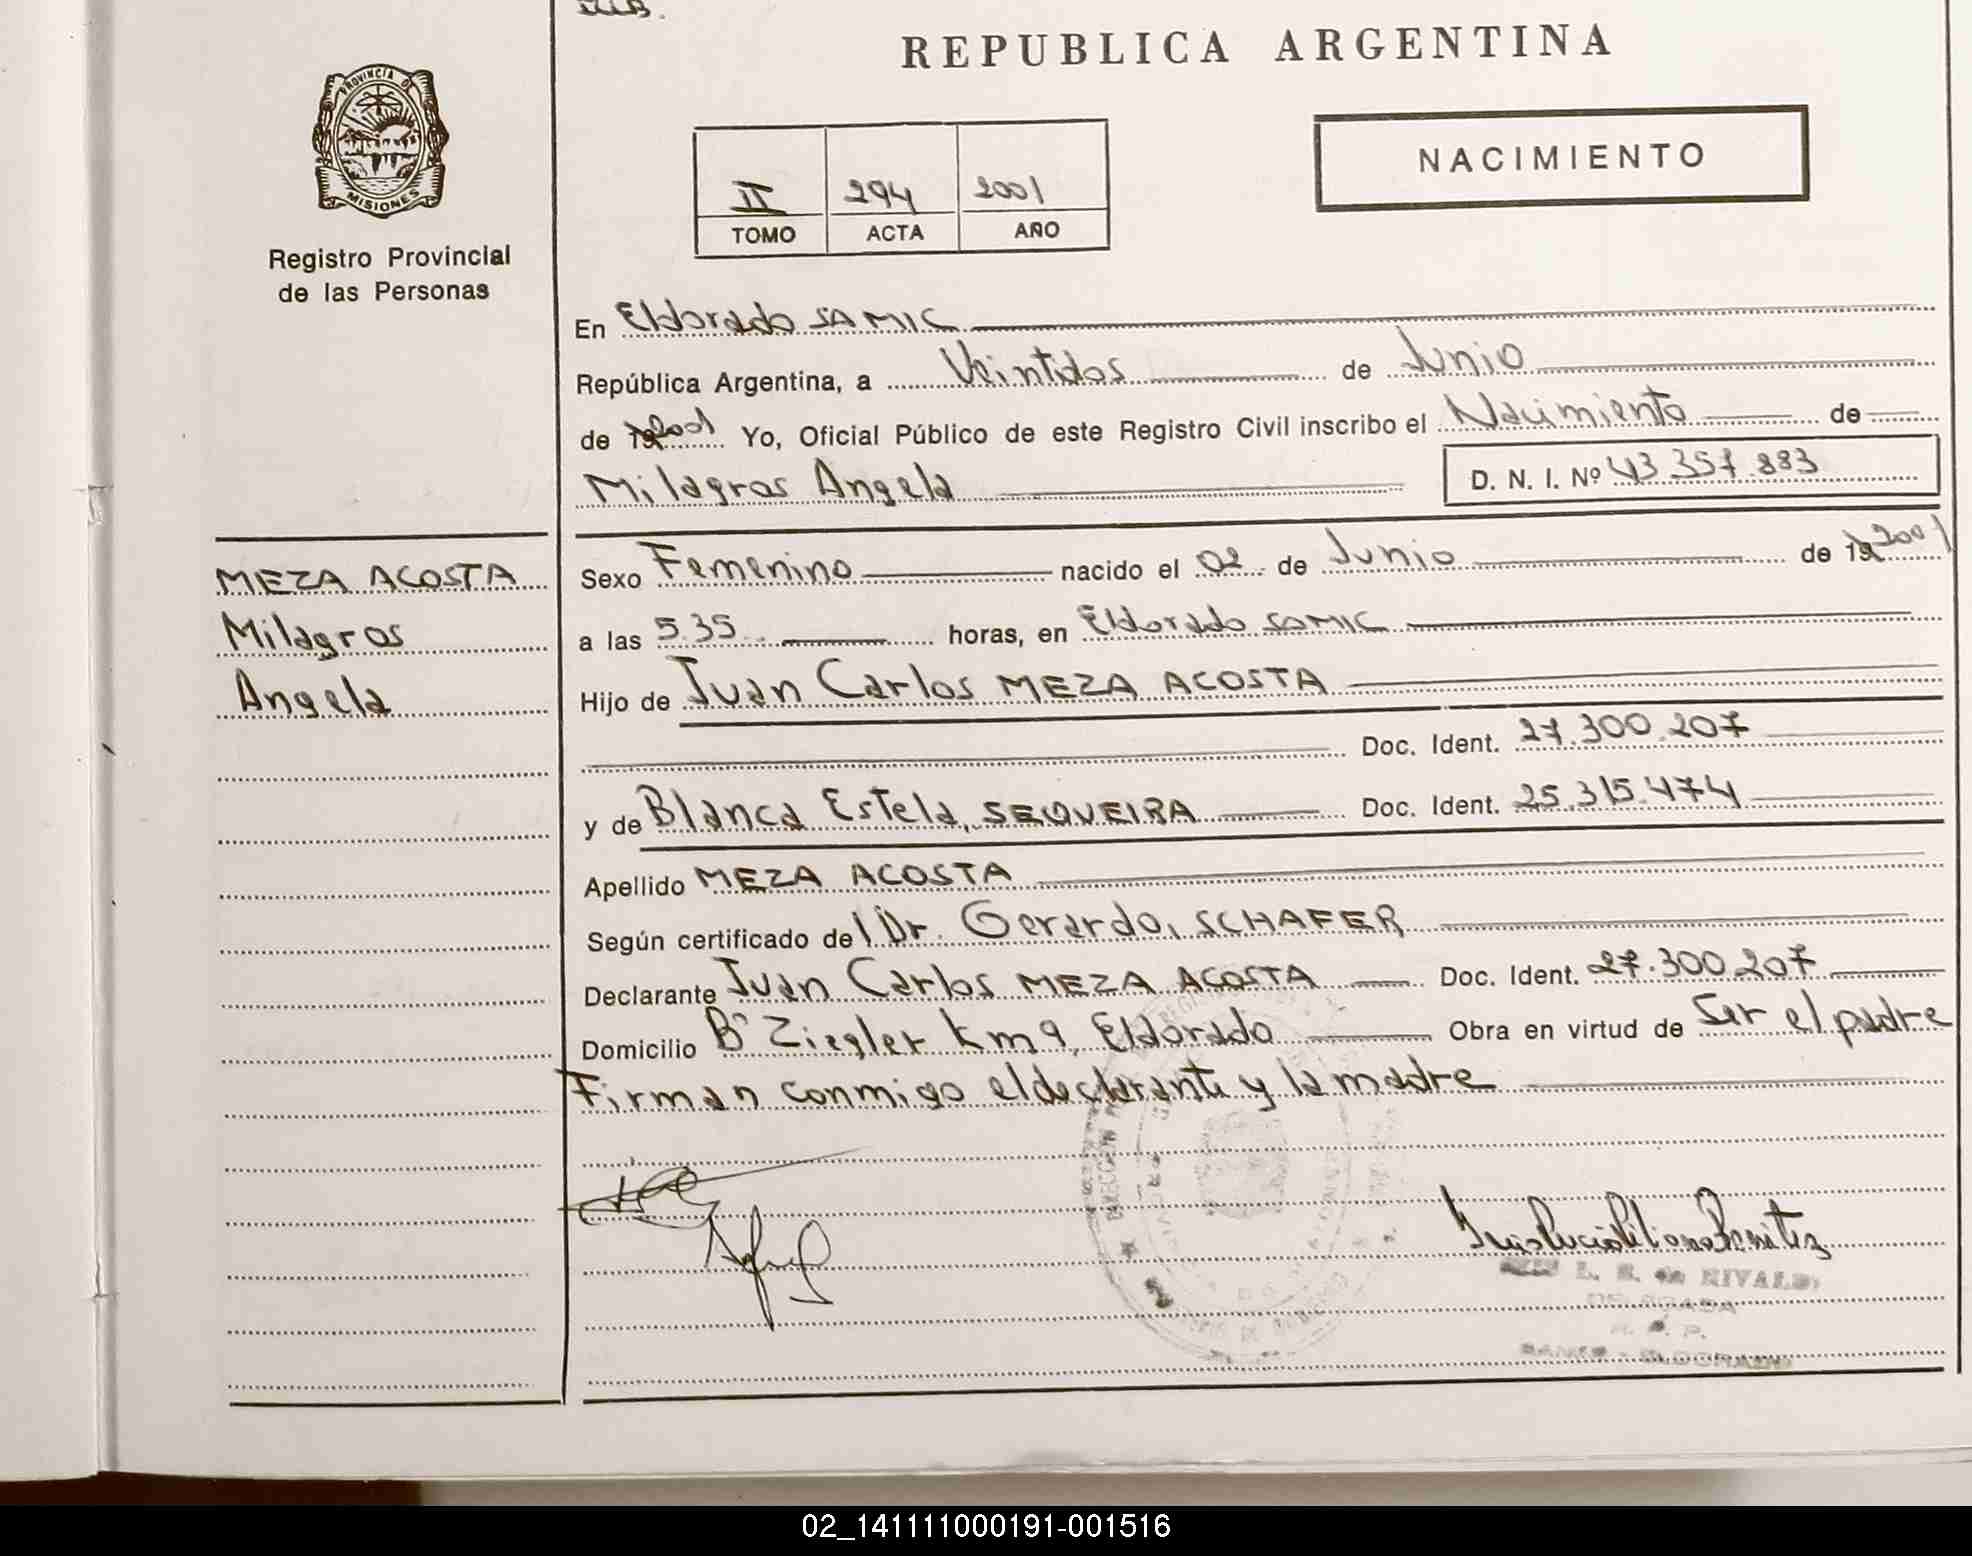 REPUBLICA ARGENTINA
PROVINCIA DE
MISIONES
Registro Provincial
de las Personas
II 294 2001
TOMO ACTA AÑO
NACIMIENTO
En Eldorado SAMIC
República Argentina, a Veintidos de Junio
de 19 2001 Yo, Oficial Público de este Registro Civil inscribo el Nacimiento de
Milagros Angela D. N. I. Nº 43 357.883
MEZA ACOSTA
Milagros
Angela
Sexo Femenino nacido el 02 de Junio de 19 2001
a las 5.35 horas, en Eldorado SAMIC
Hijo de Juan Carlos MEZA ACOSTA
Doc. Ident. 27.300.207
y de Blanca Estela, SEQUEIRA Doc. Ident. 25.315.474
Apellido MEZA ACOSTA
Según certificado del Dr. Gerardo, SCHAFER
Declarante Juan Carlos MEZA ACOSTA Doc. Ident. 27.300.207
Domicilio Bº Ziegler km 9, Eldorado Obra en virtud de Ser el padre
Firman conmigo el declarante y la madre
L. B. de RIVALD
02_141111000191-001516